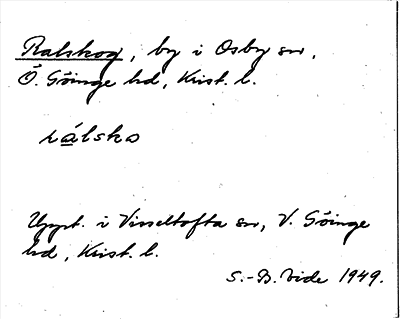 Ralskog, by i Osby sn,
Ö. Göinge hd, Krist. l.
rálsko
Uppt. i Visseltofta sn, V. Göinge
hd, Krist. l.
S.-B. Vide 1949.